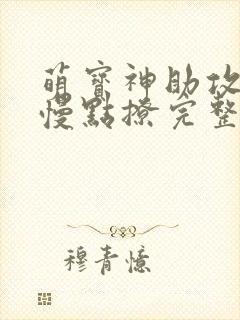 萌寶神助攻
慢點撩完整
穆青憶